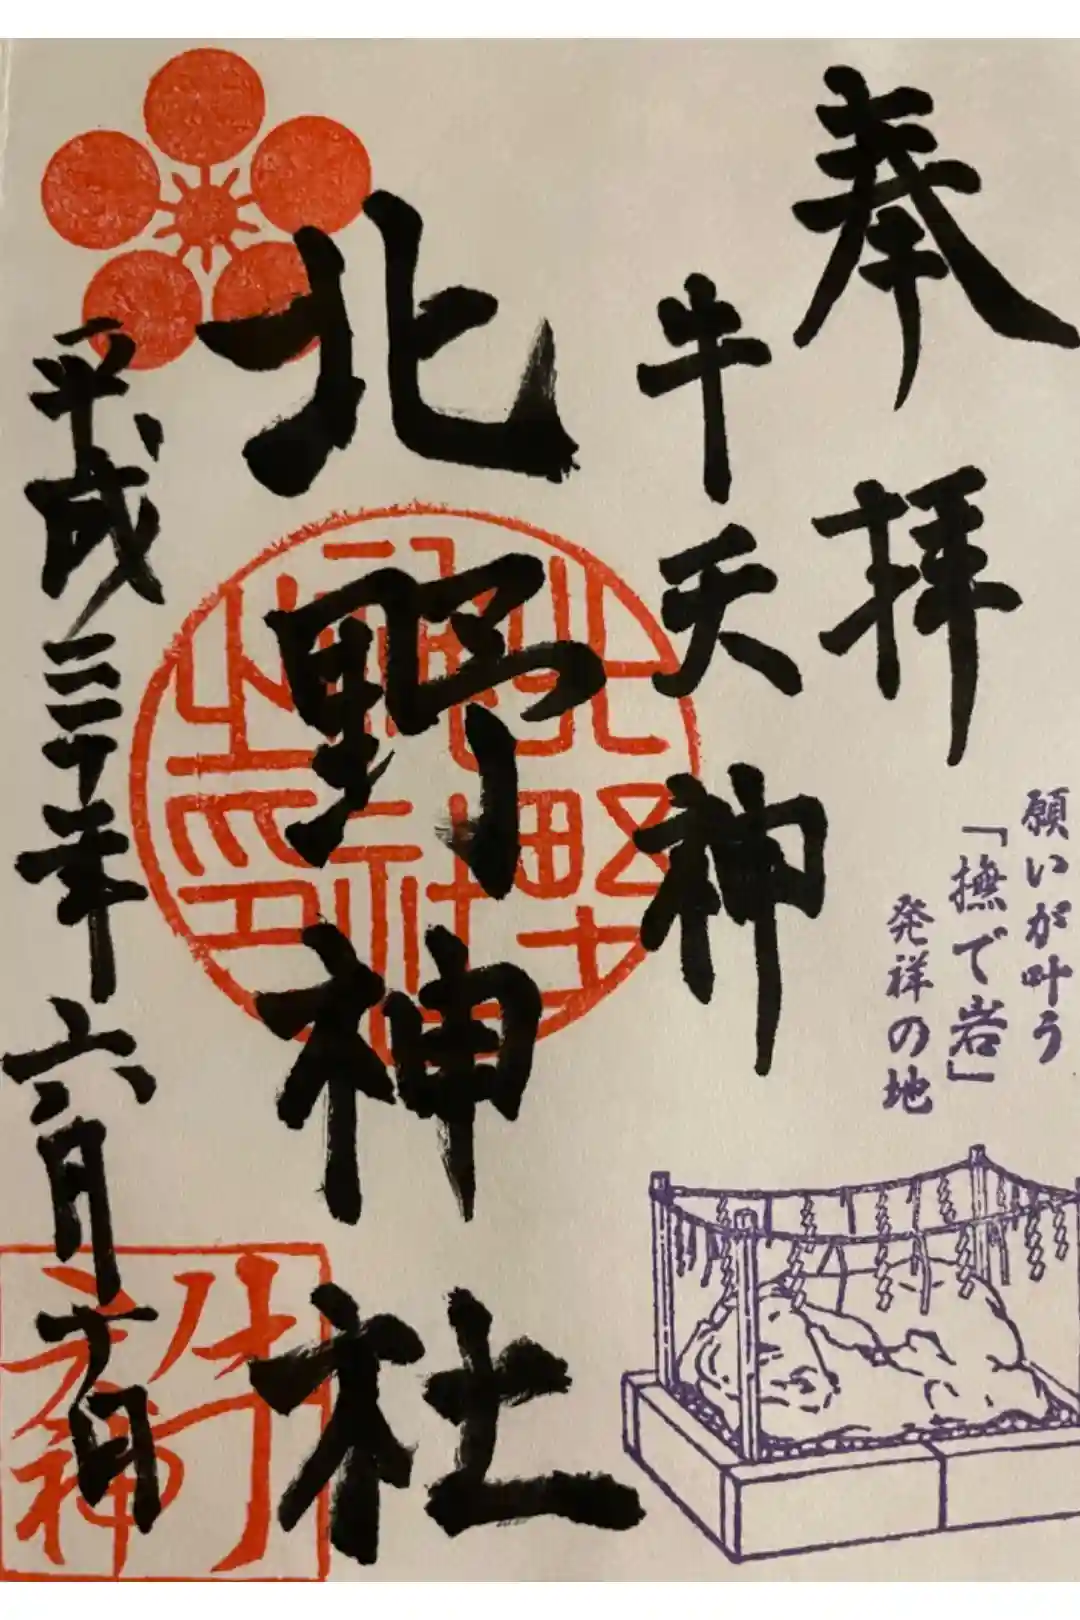 奉拝
願いが叶う
「撫で岩」
発祥の地
牛天神
北野神社
北野神社之印
平成三十年六月十日
牛天神